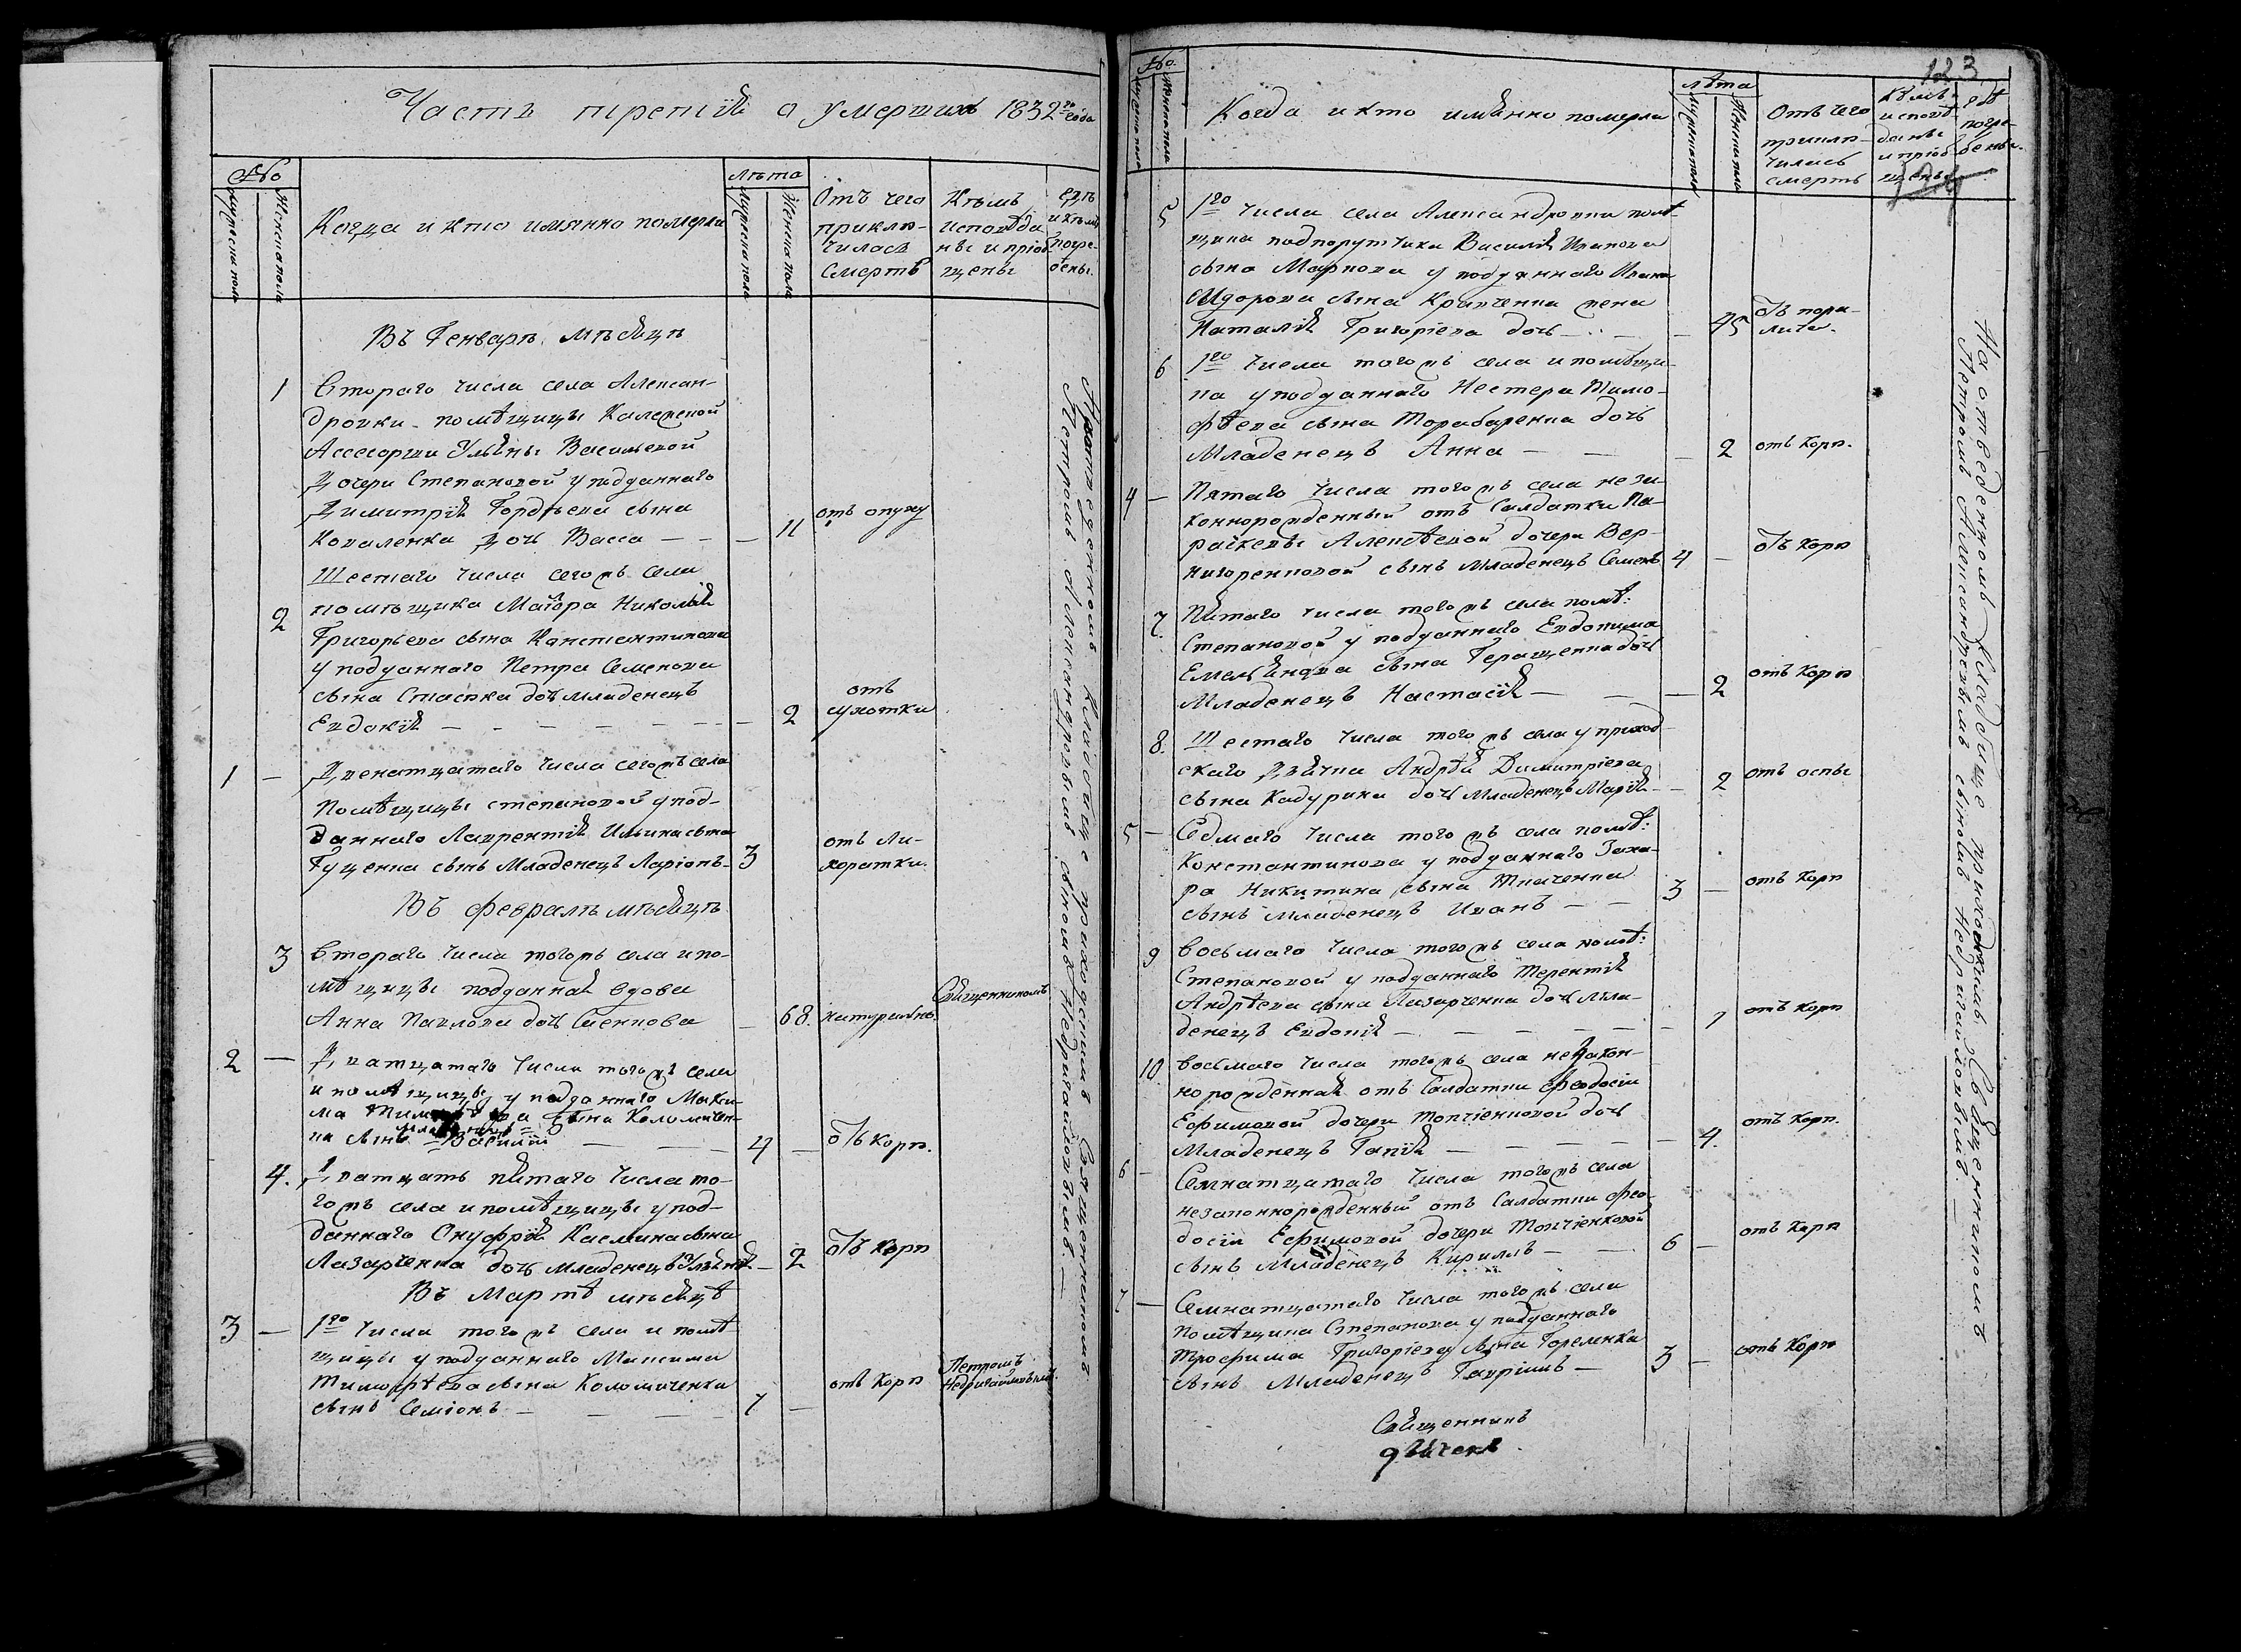 Часть третія о умершихъ 1832го года
№
Мужеска пола
Женска пола
Когда и кто имянно померли
Лѣта
Мужеска пола
Женска пола
Отъ чего
приклю-
чилась
смерть
Кѣмъ
исповѣда
ны и пріоб
щены
Гдѣ
и кѣмъ
погре-
бены.
Въ Генварѣ мѣсяцѣ
1 Втораго числа села Алексан-
дровки помѣщицы Калежской
Ассесорши Ульяны Васильевой
Дочери Степановой у подданнаго
Димитрія Гордѣева сына
Коваленка дочь Васса — — — 11 отъ опуху
Шестаго числа сегожъ села
2 помѣщика Маіора Николая
Григорьева сына Константинова
у подданнаго Петра Семенова
сына дочь младенецъ
Евдокія — — — 2 отъ сухотки
1 — Двенатцатаго числа сегожъ села
Помѣщицы степановой у под-
даннаго Лаврентія Ильина сына
Гуценка сынъ Младенецъ Ларіонъ — 3 отъ ли-
хоратки.
Въ Февралѣ мѣсяцѣ
3 Втораго числа тогожъ села и по-
мѣщицы подданная вдова
Анна Павлова дочь — 68. натурально. Священникомъ
2 — Дватцатаго числа тогожъ села
и помѣщицы у подданнаго Макси-
ма сына Коломичен-
ка сынъ младенецъ Василій — — 4 — отъ Корп.
4. Дватцать пятаго числа то-
гожъ села и помѣщицы у под-
даннаго Онуфрія Касмина сына
Лазарченка дочь младенецъ Ульяна — 2 отъ Корп
Въ Мартѣ мѣсяцѣ
3 — 1го числа тогожъ села и помѣ-
щицы у подданнаго Максима
Тимофѣева сына Коломиченка
сынъ Семіонъ — — — 1 — отъ Корп Петромъ
Недригайловымъ.
На отведенномъ кладбище приходскимъ Священникомъ
Петромъ Александровымъ сыномъ Недригайловымъ. —
123
№
Мужеска пола
Женска пола
Когда и кто имянно померли
лѣта
Мужеска пола
Женска пола
Отъ чего
приклю-
чилась
смерть
Кѣмъ
исповѣ-
даны
и пріоб
щены
гдѣ
погре-
бены.
5 1го числа села Александровки помѣ-
щика подпорутчика Василія Иванова
сына Маркова у подданнаго Ивана
сына Кравченка жена
Наталія Григоріева дочь — — 45 отъ пора-
лича.
6 1го числа тогожъ села и помѣщи-
ка у подданнаго Нестера Тимо-
фѣева сына Торабаренка дочь
Младенецъ Анна — — — 2 отъ Корп.
4 — Пятаго числа тогожъ села неза-
коннорожденный отъ Салдатки Па-
раскевы Алексѣевой дочери Вер-
нигоренковой сынъ Младенецъ Семенъ 4 — отъ Корп
7. Пятаго числа тогожъ села помѣ:
Степановой у подданнаго Евдокима
Емельянова сына Геращенка дочь
Младенецъ Настасія — — — 2 отъ Корп
8. Шестаго числа тогожъ села у приход-
скаго Дьячка Андрѣя Димитріева
сына Кадурина дочь Младенецъ Марія — 2 отъ оспы
5 — Седмаго числа тогожъ села помѣ:
Константинова у подданнаго Заха-
ра Никитина сына Ткаченка
сынъ Младенецъ Иванъ — — 3 — отъ Корп
9 восьмаго числа тогожъ села помѣ:
Степановой у подданнаго Терентія
Андрѣева сына Лазарченка дочь Мла-
денецъ Евдокія — — — — — 1 отъ Корп
10. восьмаго числа тогожъ села незакон-
норожденная отъ Салдатки Феодосіи
Ефимовой дочери Топчіенковой дочь
Младенецъ Гапія — — — — 4. отъ Корп.
6 — Семнатцатаго числа тогожъ села
незаконнорожденный отъ Салдатки Фео-
досіи Ефимовой дочери Топчіенковой
сынъ Младенецъ Кириллъ — — 6 — отъ Корп
7 — Семнатцатаго числа тогожъ села
Помѣщика Степанова у подданнаго
Трофима Григоріева сына Горемика
сынъ Младенецъ Гавріилъ — 3 — отъ Корп
Священникъ
На отведенномъ кладбище приходскимъ Священникомъ
Петромъ Александровымъ сыномъ Недригайловымъ. —